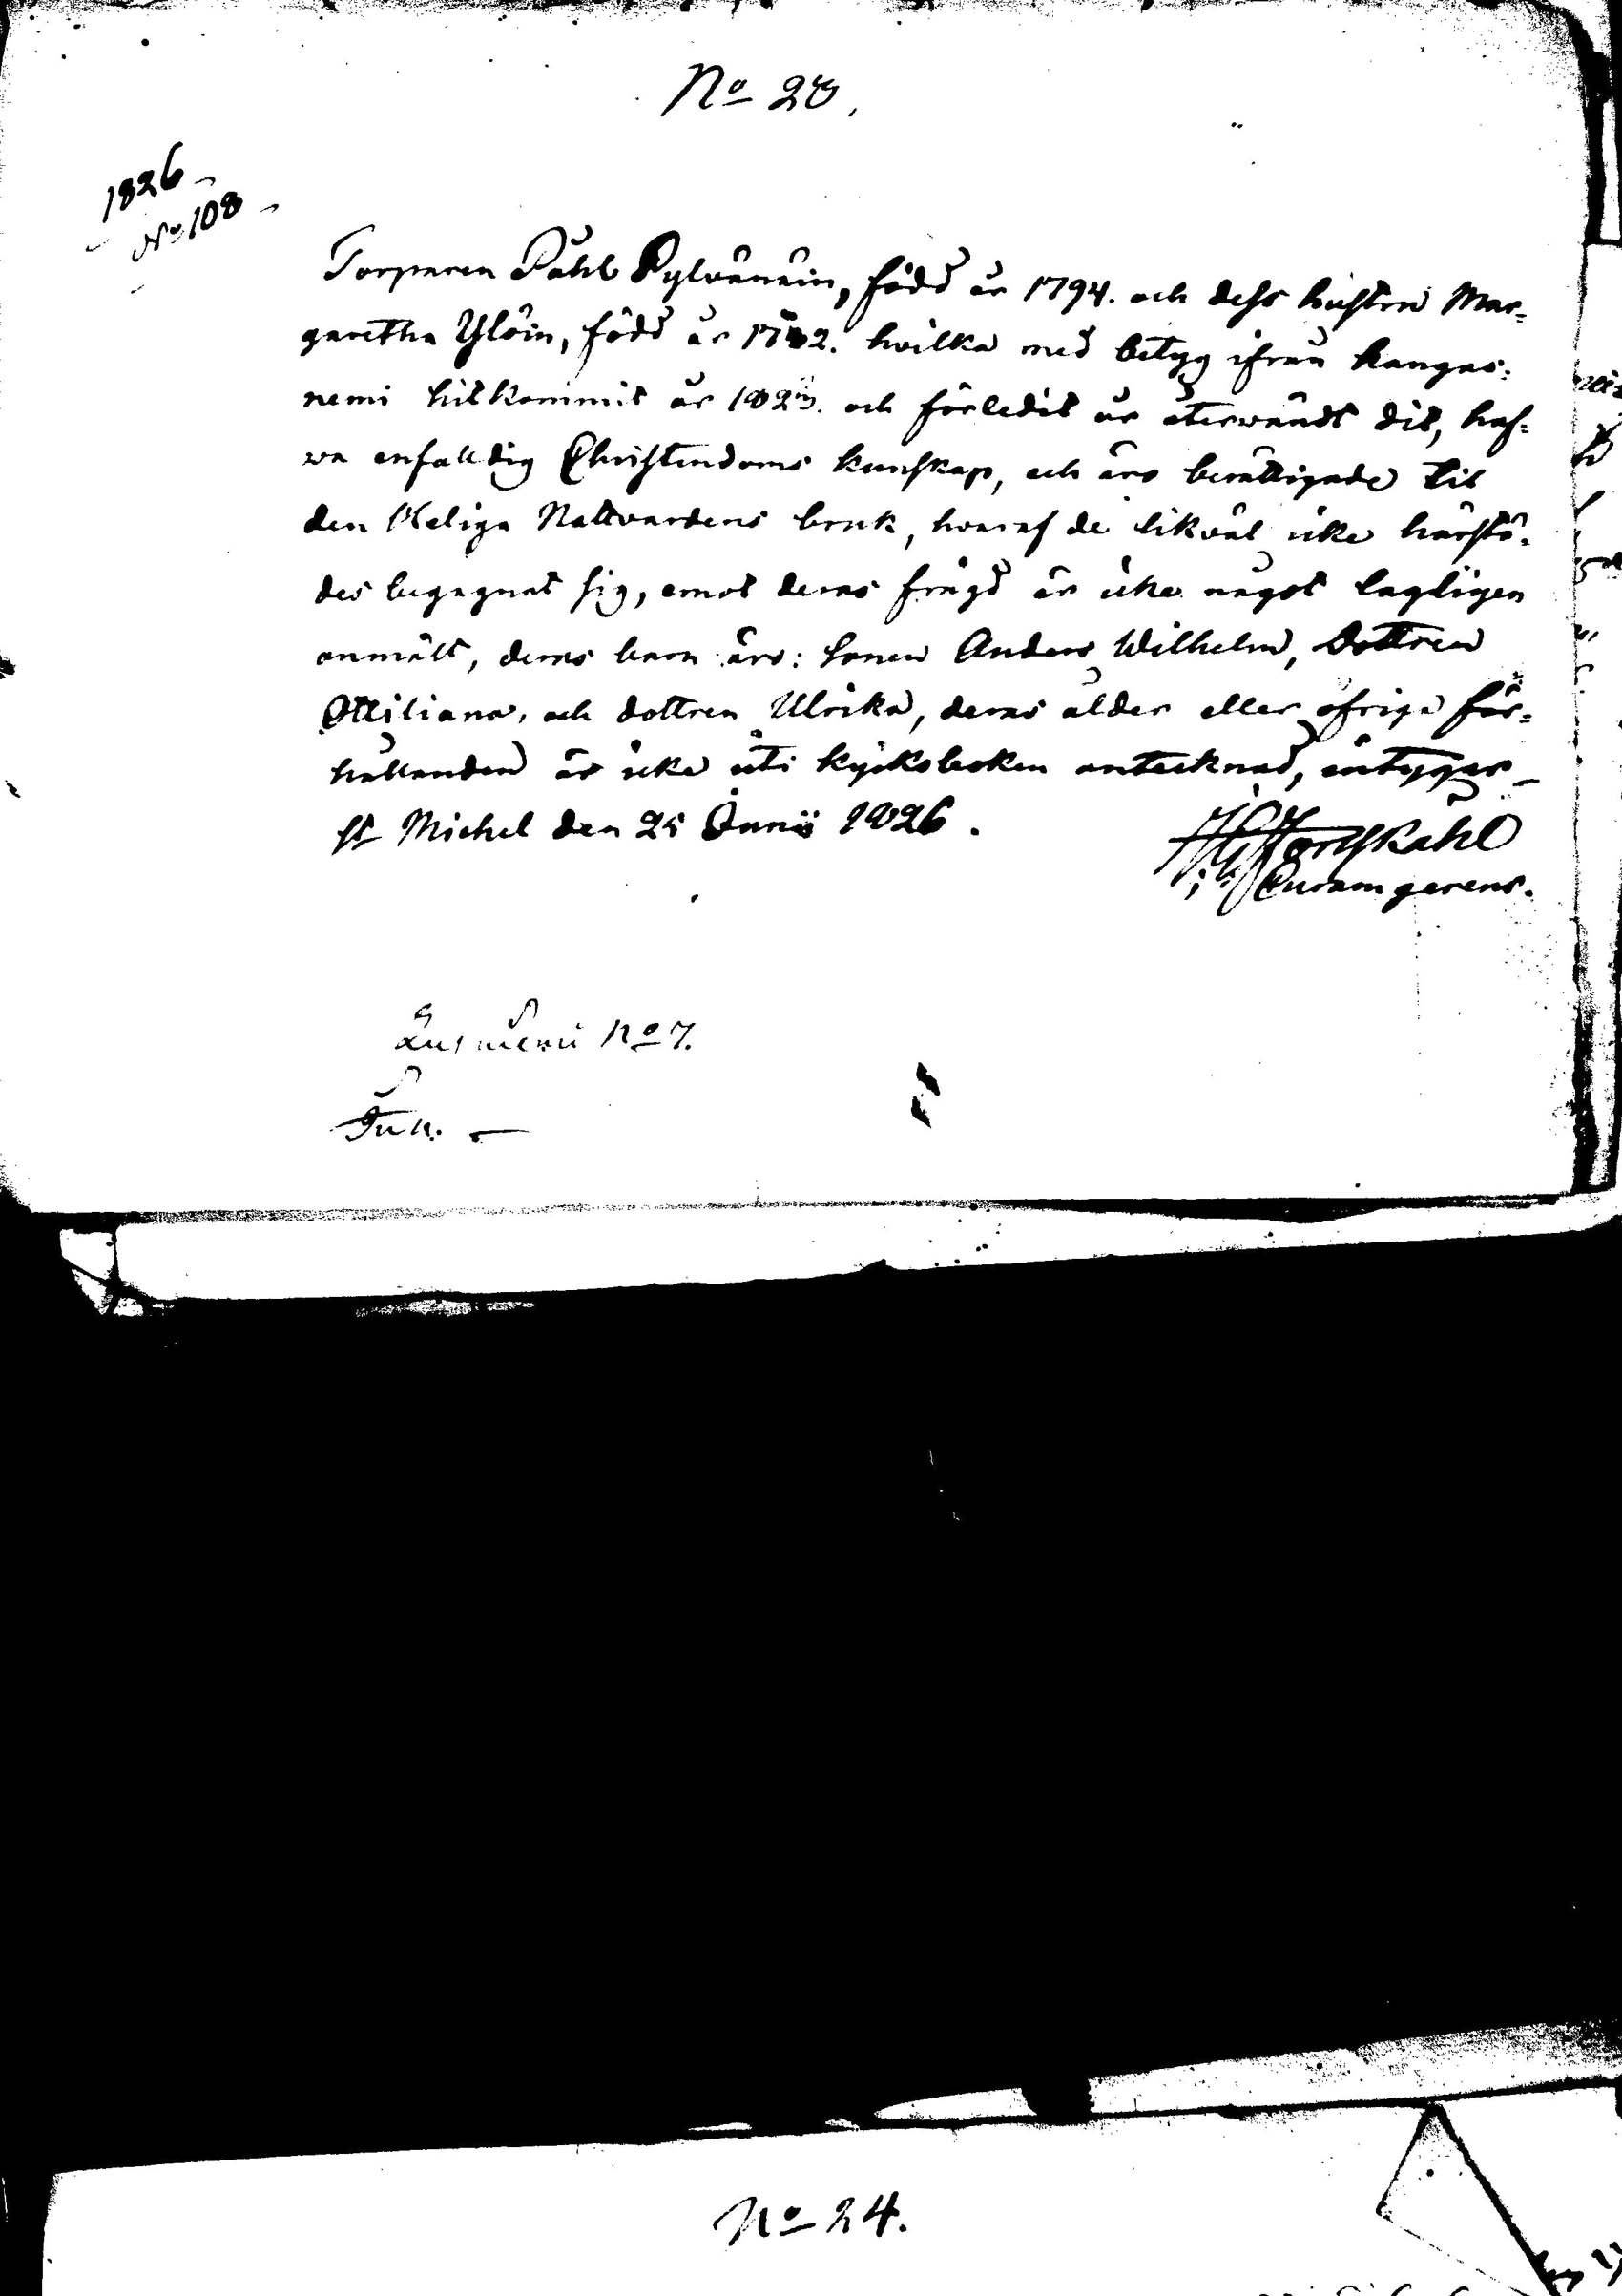 No 28.
1826
No 108
Torparen Påhl Pylvänäin, född år 1794. och dess hustru Mar=
garetha Ylöin, född år hvilka med betyg ifrån Kangas=
nemi hitkommit år och förledit år återwändt dit, haf=
wa enfalldig Christendoms kunskap, och äro berättigade til
den Heliga Nattvardens bruk, hvaraf de likväl icke härstä=
des begagnat sig, emot deras frägd är icke något lagligen
anmält, deras barn äro: sonen Anders Wilhelm, Dottren
Ottiliana, och dottren Ulrika, deras ålder eller öfriga för=
hållanden är icke uti kyrkoboken antecknad, intygar
St Michel den 25 Junii 1826.
Forsskåhl
Curam gerens.
No 7.
No 24.